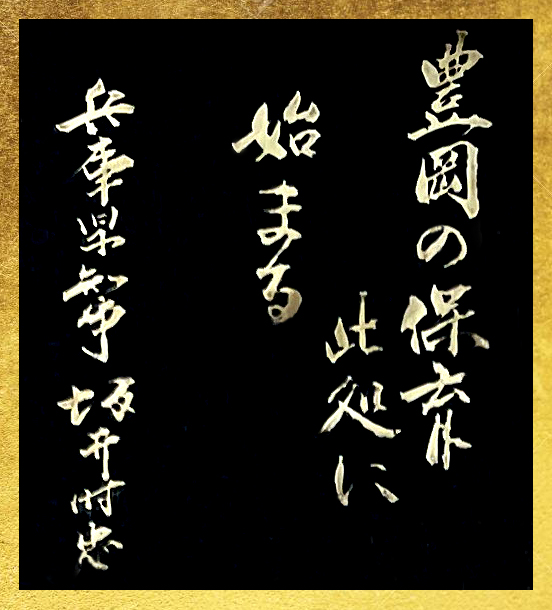 豊岡の保育
此処に
始まる
兵庫県知事 坂井時忠